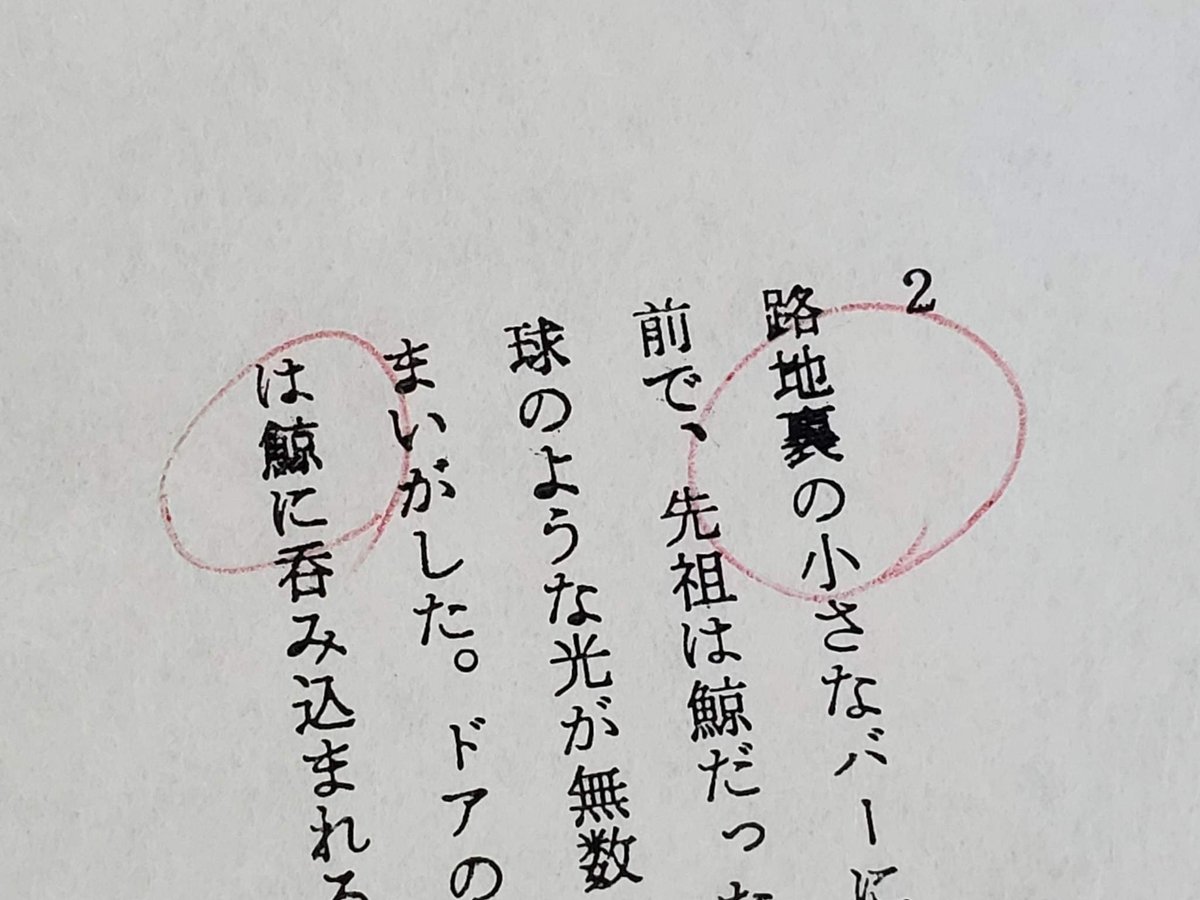 2
路地裏の小さなバーに
前で、先祖は鯨だった
球のような光が無数
まいがした。ドアの
は鯨に呑み込まれる